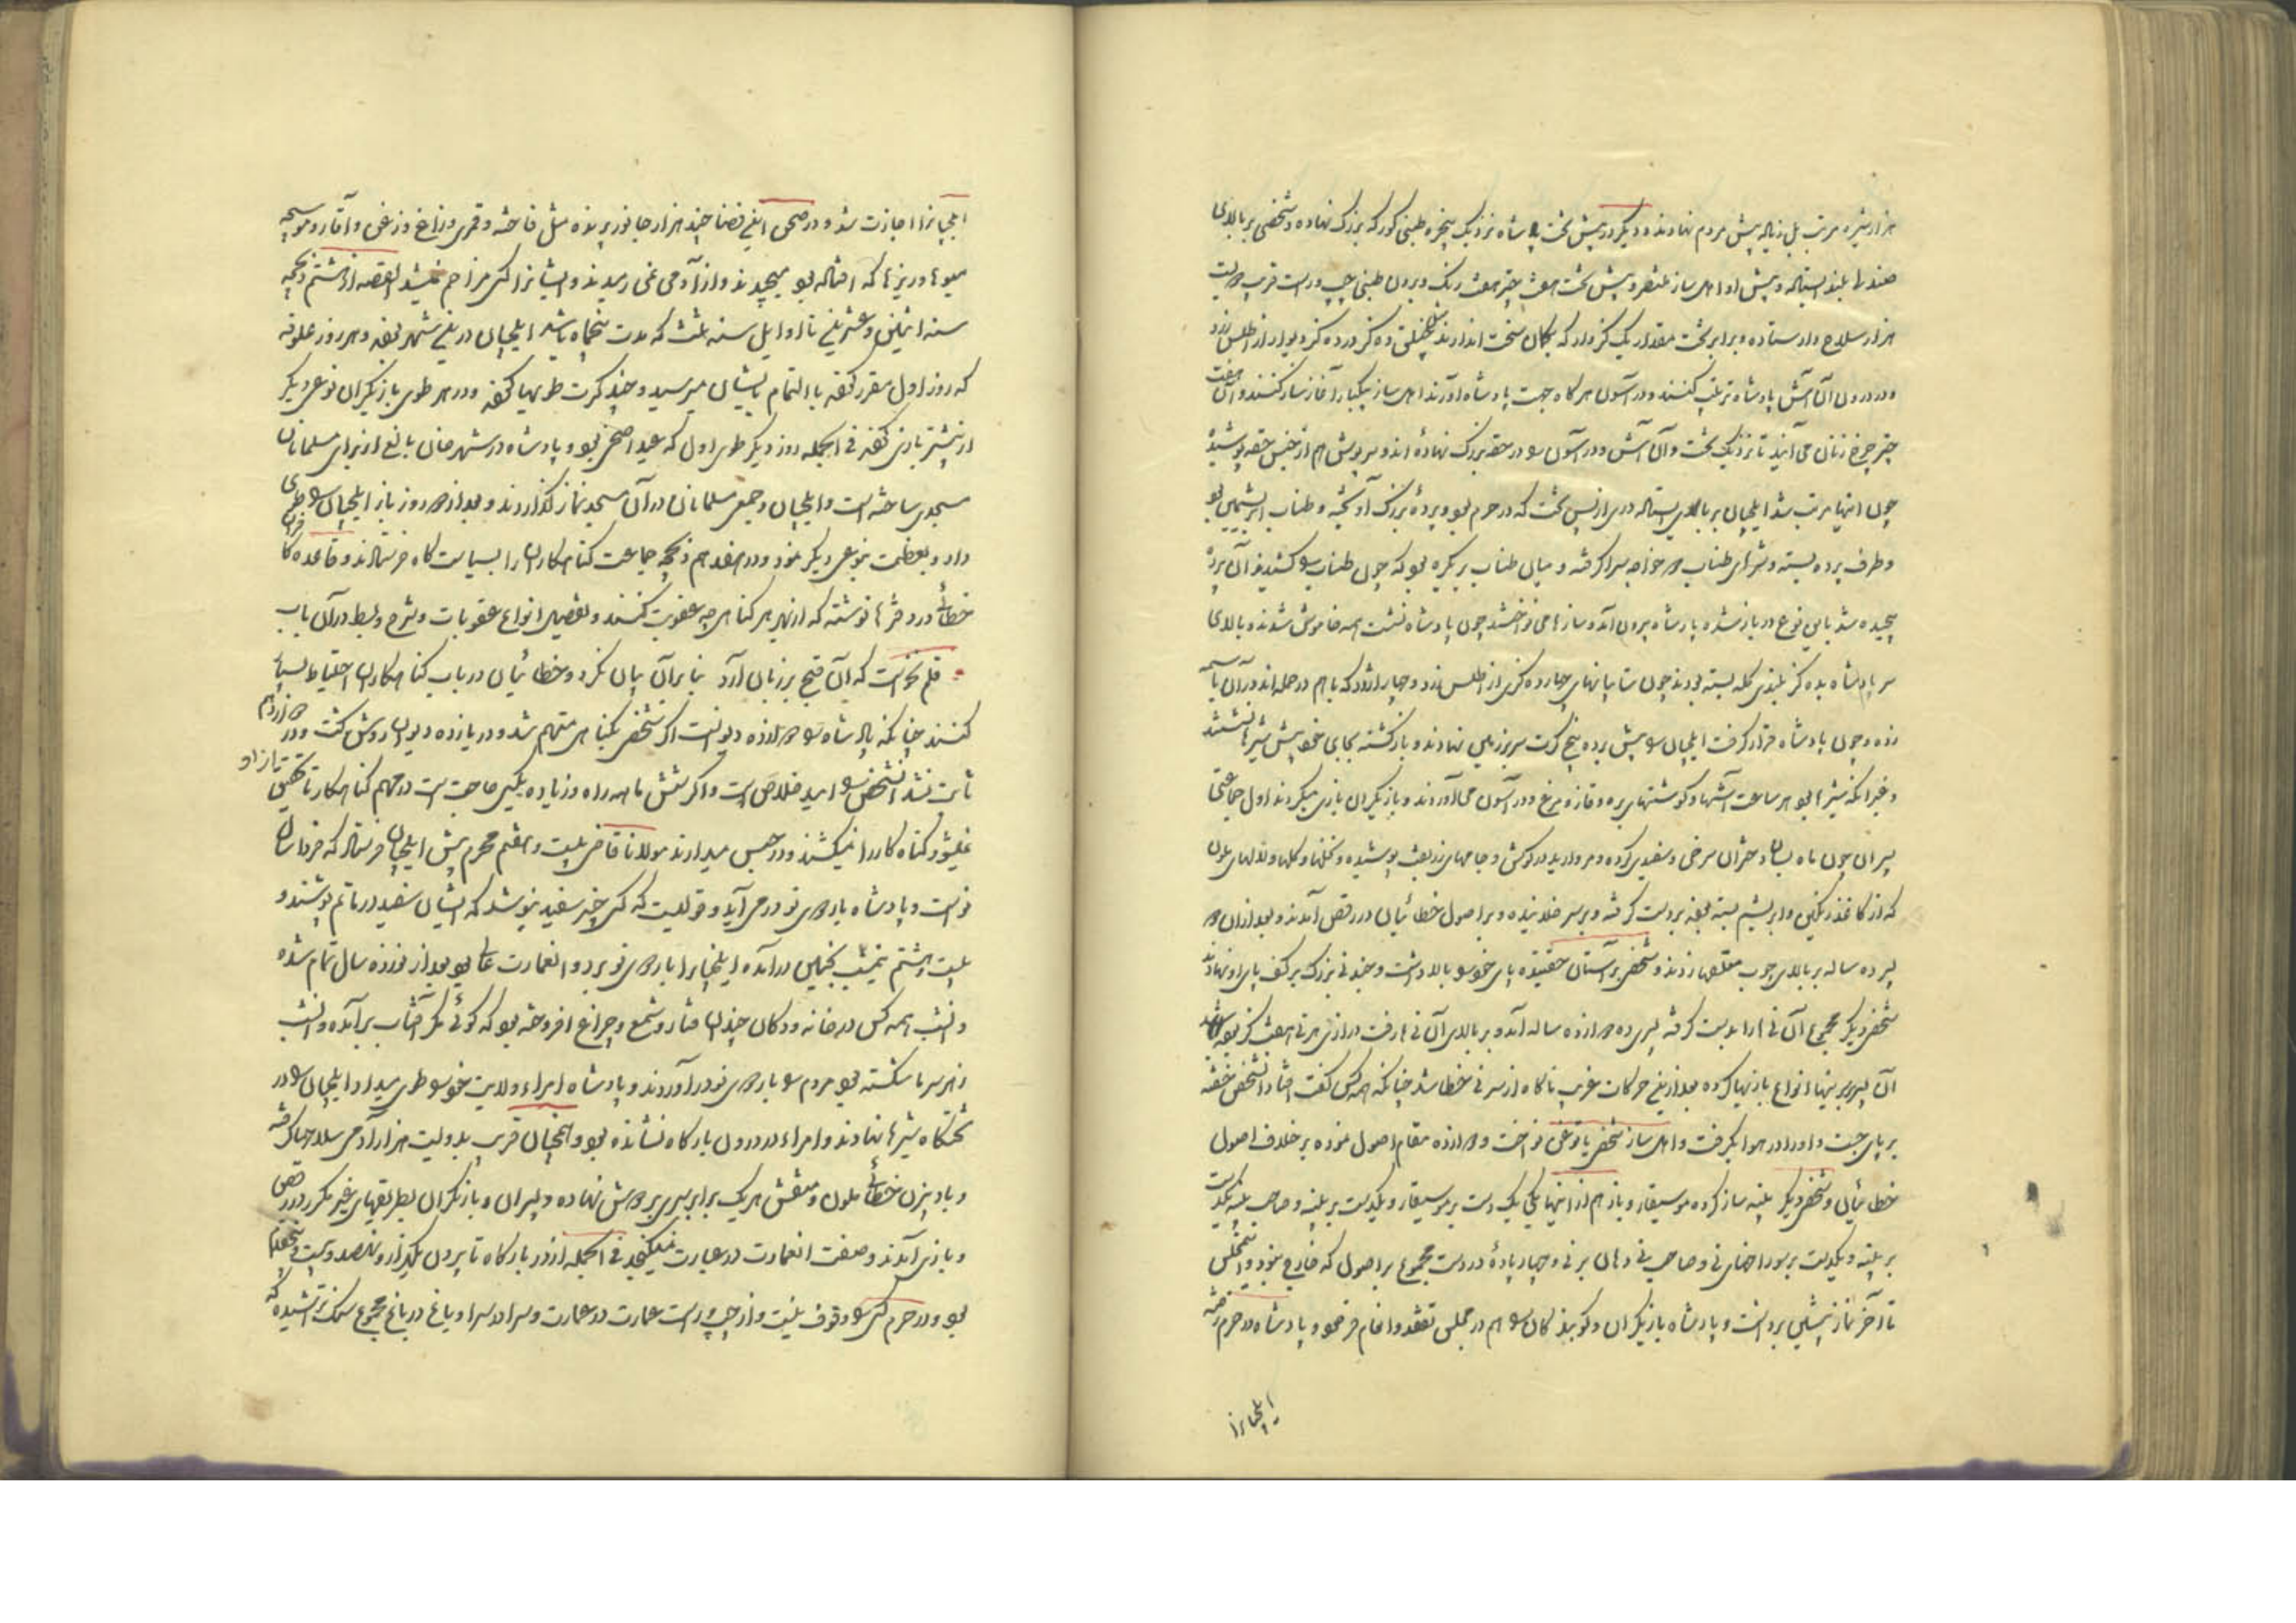 هزار شیره مرتب بل زیاده پیش مردم نهادند و دیگر در پیش تخت پادشاه نزدیک پنجره طبنی کورکه بزرگ نهاده و شخصی بر بالای
صندلی بلند ایستاده و پیش او اهل ساز منتظر و پیش تخت هفت چتر هفت رنگ و برون طبنی چپ و راست قریب دویست
هزار سلاح دار ستاده و برابر تخت مقدار یک گز وار که بکمان سخت اندازند ده گز در ده گز دیوار از اطلس زرد
و در درون آن آش پادشاه ترتیب کنند و در آسون هر گاه جهت پادشاه آورند اهل ساز بیکبار آغاز ساز کنند و آن هفت
چتر چرخ زنان می آیند تا نزدیک تخت و آن آش و در آسون را در حقه بزرگ نهاده اند و سرپوش هم از جنس حقه پوشیده
چون اینها مرتب شد ایلچیان بر بالای ایستاده دری از پس تخت که در حرم بود و پرده بزرگ آویخته و طناب ابریشمین بود
و طرف پرده بسته و سرهای طناب دو خواجه سرا گرفته و میان طناب بر بکره بود که چون طناب را کشیدند آن پرده
پیچیده شد باین نوع در باز شد و پادشاه برون آمد و سازها می نواختند چون پادشاه نشست همه خاموش شدند و بالای
سر پادشاه بده گز بلندی کله بسته بودند چون سایبانهای چهار ده گزی از اطلس زرد و چهار اژدر که با هم در حمله اند در آن باسمه
زده و چون پادشاه قرار گرفت ایلچیان را پیش برده پنج کرت سر بر زمین نهادند و بازگشته بجای خود پیش شیرها نشستند
و غیر آنکه شیرها بود هر ساعت آشها و گوشتهای بره و قاز و مرغ و در آسون می آوردند و بازیگران بازی میکردند اول جماعتی
پسران چون ماه بسان دختران سرخی و سفیدی کرده و مروارید در گوش و جامهای زربفت پوشیده و نخلها و گلها و لالهای ملون
که از کاغذ رنگین و ابریشم بسته بودند بر دست گرفته و بر سر خلانیده و بر اصول خطائیان در رقص آمدند و بعد از آن دو
پسر ده ساله بر بالای چوب معلقها زدند و شخصی بر آستان خفتیده پای خود را بالا داشت و چند نی بزرگ بر کف پای او نهادند
شخصی دیگر مجموع آن نی ها را بدست گرفته پسری ده دوازده ساله آمد و بر بالای آن نی ها رفت درازی هر نی هفت گز بود
آن پسر بر نیها انواع بازیها کرده بعد ازین حرکات غریب ناگاه از سر نی خطا شد چنانکه همه کس گفت افتاد آن شخص خفته
بر پای جست و او را در هوا بگرفت و اهل ساز شخصی یاتوغن نواخت و دوازده مقام اصول نموده بر خلاف اصول
خطائیان و شخصی دیگر پیپه ساز کرده موسیقار و باز هم از اینها یکی یک دست بر موسیقار و یکدست بر پیپه و صاحب پیپه یکدست
بر پیپه و یکدست بر سوراخهای نی و صاحب نی دهان بر نی و چهارپاره در دست مجموع بر اصول که خارج نبود و این مجلس
تا آخر نماز پیشین برداشت و پادشاه بازیگران و گویندگان را هم در مجلس تفقد و انعام فرمود و پادشاه در حرم رفته
ایلچیانرا
ایلچیانرا اجازت شد و در صحن این فضا چند هزار جانور پرنده مثل فاخته و قمری و زاغ و زغن و
میوها و ریزها که افتاده بود میچیدند و از آدمی نمی رمیدند و ایشانرا کسی مزاحم نمیشد القصه از هشتم ذیحجه
سنه اثنین و عشرین تا اوایل سنه ثلث که مدت پنجماه باشد ایلچیان درین شهر بودند و هر روز علوفه
که روز اول مقرر گفته با التمام بایشان میرسید و چند کرت طویها کفته و در هر طوی بازیگران نوعی دیگر
از پیشتر بازی کفتند فی الجمله روز دیگر طوی اول که عید اضحی بود و پادشاه در شهر خان بالغ از برای مسلمانان
مسجدی ساخته است و ایلچیان و جمعی مسلمانان در آن مسجد نماز گذاردند و بعد از دو روز باز ایلچیان را طوی
داد و تعظیمت بنوعی دیگر نمود و در هفدهم ذیحجه جماعت گناهکاران را بسیاست گاه فرستادند و قاعده کافران
خطای در دفترها نوشته که از بهر هر گناهی چه عقوبت کنند و تفصیل انواع عقوبات و شرح و بسط در آن باب
قلم نخواست که آن قبح بر زبان آرد بنابر آن بیان نکرد و خطائیان در باب گناهکاران احتیاط بسیار
کنند چنانکه پادشاه را دوازده دیوانست اگر شخصی بگناهی متهم شد و در یازده دیوان روشن گشت و در دوازدهم
ثابت نشد آن شخص را امید خلاص است و اگر شش ماهه راه و زیاده بکسی حاجت است در مهم گناهکار تا تحقیق
نمیشود گناه کار را نمیکشند و در حبس میدارند مولانا قاضی بیست و هفتم محرم پیش ایلچیان فرستاد که فردا سال
نو است و پادشاه باردوی نو در می آید و قولیست که کسی چیز سفید نپوشد که ایشان سفید در ماتم پوشند و
بیست و هشتم نیمشب بخجین در آمده ایلچیانرا باردوی نو برد و آن عمارت عالی بود بعد از نوزده سال تمام شده
و آن شب همه کس در خانه و دکان چندان فنار و شمع و چراغ افروخته بود که گوئی مگر آفتاب برآمده و آن شب
زهر سرما شکسته بود مردم را باردوی نو در آوردند و پادشاه امراء ولایت خود را طوی میداد ایلچیان را در
تختگاه شیرها نهادند و امراء در درون بارگاه نشانده بود و همچنان قریب بدویست هزار آدمی سلاحها گرفته
و بادبزن خطای ملون و منقش هر یک برابر سپری بر دوش نهاده و پسران و بازیگران بطریقهای غیر مکرر در رقص
و بازی آمدند و صفت آن عمارت در عبارت نمیگنجد فی الجمله از در بارگاه تا برون یکهزار و نهصد و بیست و پنج قدم
بود و در حرم کس را وقوف نیست و از چپ و راست عمارت در عمارت و سرا در سرا و باغ در باغ مجموع سنگ تراشیده که